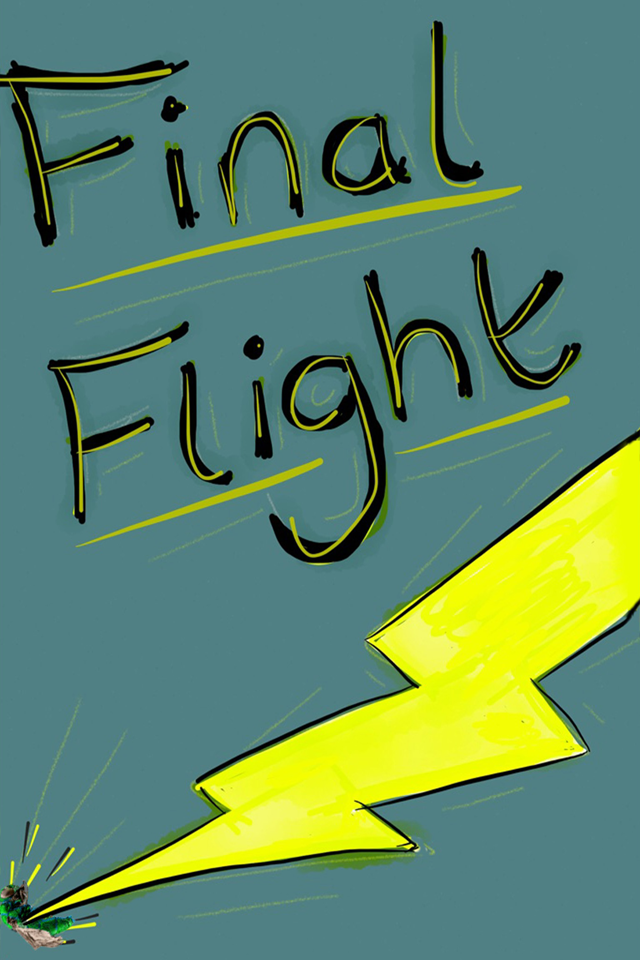 Final
Flight